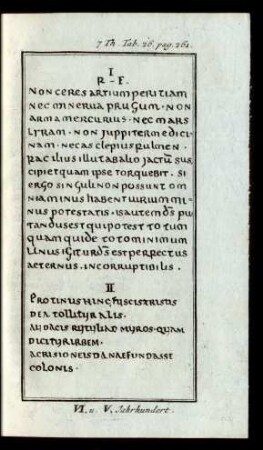 7 Th. Tab. 26. pag. 262.
I
R - F.
NON CERES ARTIUM PERITIAM
NEC MINERUA FRUGUM · NON
ARMA MERCURIUS · NEC MARS
LYRAM · NON IUPPITER MEDICI
NAM · NEC ASCLEPIUS FULMEN ·
FACILIUS ILLUT ABALIO JACTŪ SUS
CIPIET QUAM IPSE TORQUEBIT · SI
ERGO SINGULI NON POSSUNT OM
NIA MINUS HABENT UIRIUM MI
NUS POTESTATIS · IS AUTEM DS̄ PU
TANDUS EST QUI POTEST TOTUM
QUAM QUI DE TOTO MINIMUM
UNUS IGITUR DS̄ EST PERFECTUS
AETERNUS · INCORRUPTIBILIS ·
II
PROTINUS HINC FUSCIS TRISTIS
DEA TOLLITUR ALIS ·
AUDACIS RUTULI AD MUROS · QUAM
DICITUR URBEM ·
ACRISIONEIS DANAE FUNDASSE
COLONIS ·
VI. u. V. Jahrhundert.